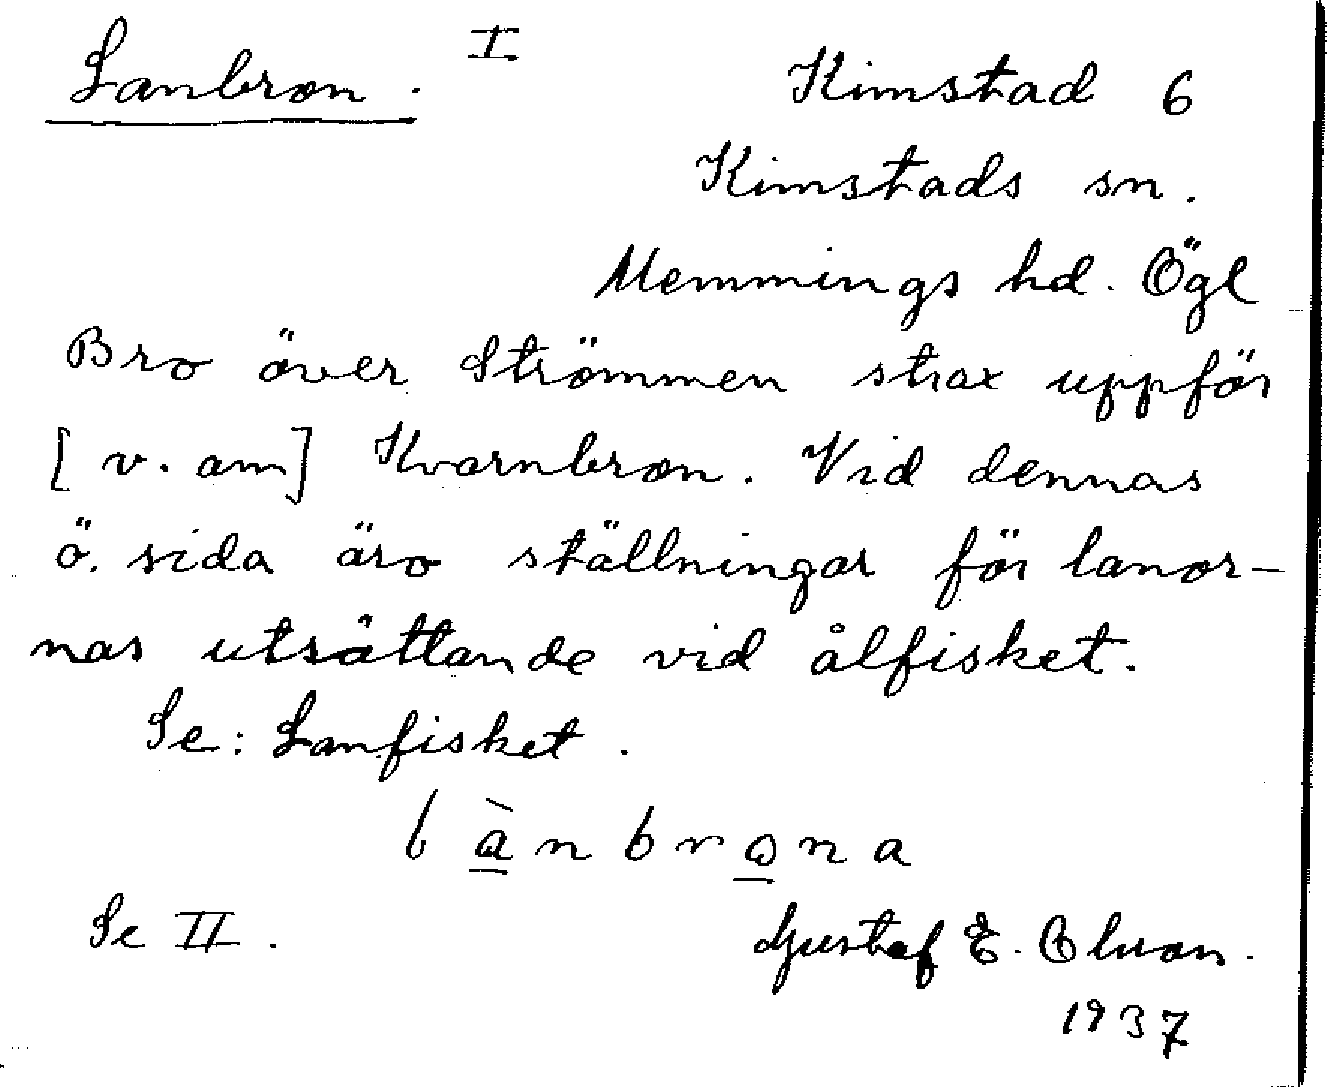 Lanbron. I Kimstad 6
Kimstads sn.
Memmings hd. Ögl
Bro över Strömmen strax uppför
[v. om] Kvarnbron. Vid dennas
ö. sida äro ställningar för lanor-
nas utsättande vid ålfisket.
Se: Lanfisket.
lànbrona
Se II. Gustaf E.
1937